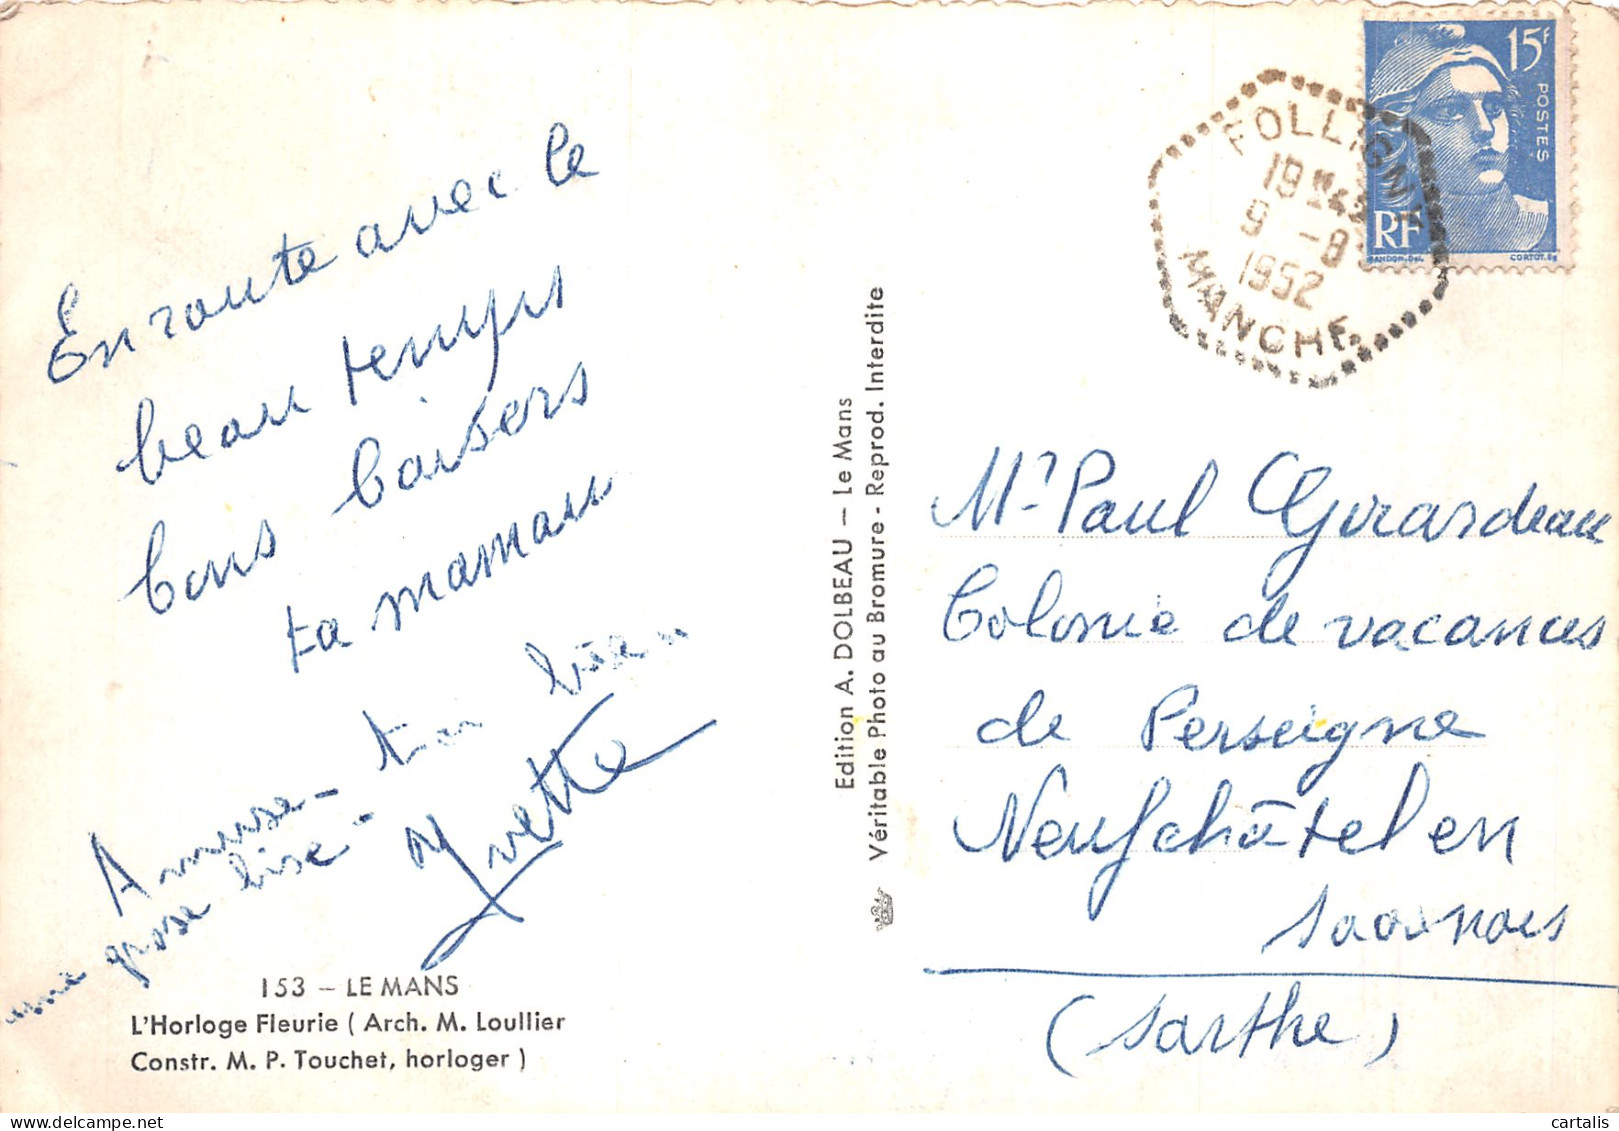 En route avec le
beau temps
bons baisers
ta maman
Amuse-toi bien
une grosse bise
Yvette
153 – LE MANS
L'Horloge Fleurie ( Arch. M. Loullier
Constr. M. P. Touchet, horloger )
Edition A. DOLBEAU – Le Mans
Véritable Photo au Bromure - Reprod. Interdite
15F
POSTES
RF
GANDON. Del.
CORTOT. Sc
FOLLIGNY
19
9 -8
1952
MANCHE
Mr Paul Girardeau
Colonie de vacances
de Perseigne
Neufchâtel en
Saosnois
(Sarthe)
cartalis
delcampe.net